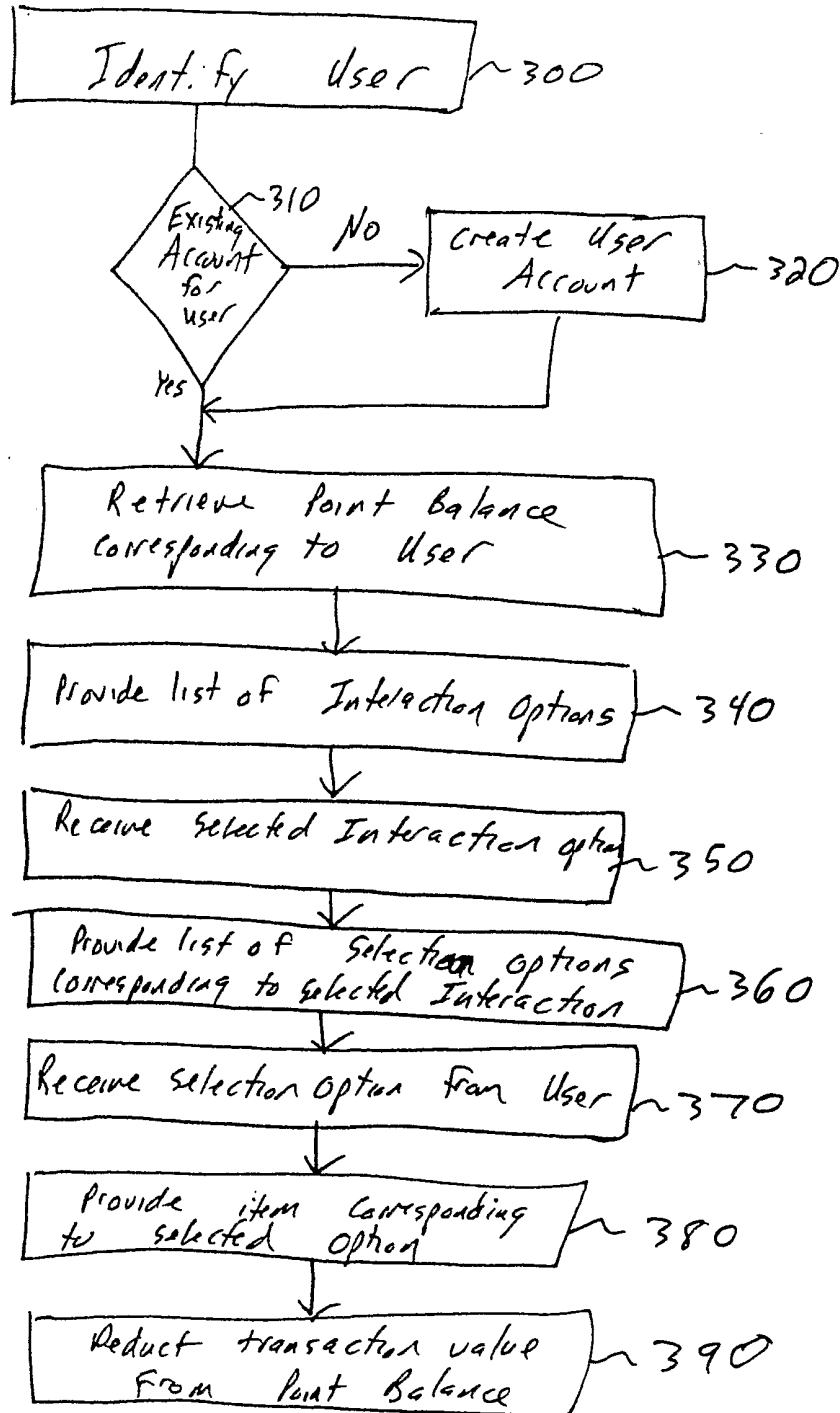 Identify User
300
310
Existing
Account
for
user
No
Create User
Account
320
Yes
Retrieve Point Balance
Corresponding to User
330
Provide list of Interaction Options
340
Receive Selected Interaction option
350
Provide list of Selection options
Corresponding to selected Interaction
360
Receive Selection Option From User
370
Provide item Corresponding
to selected Option
380
Deduct transaction value
From Point Balance
390